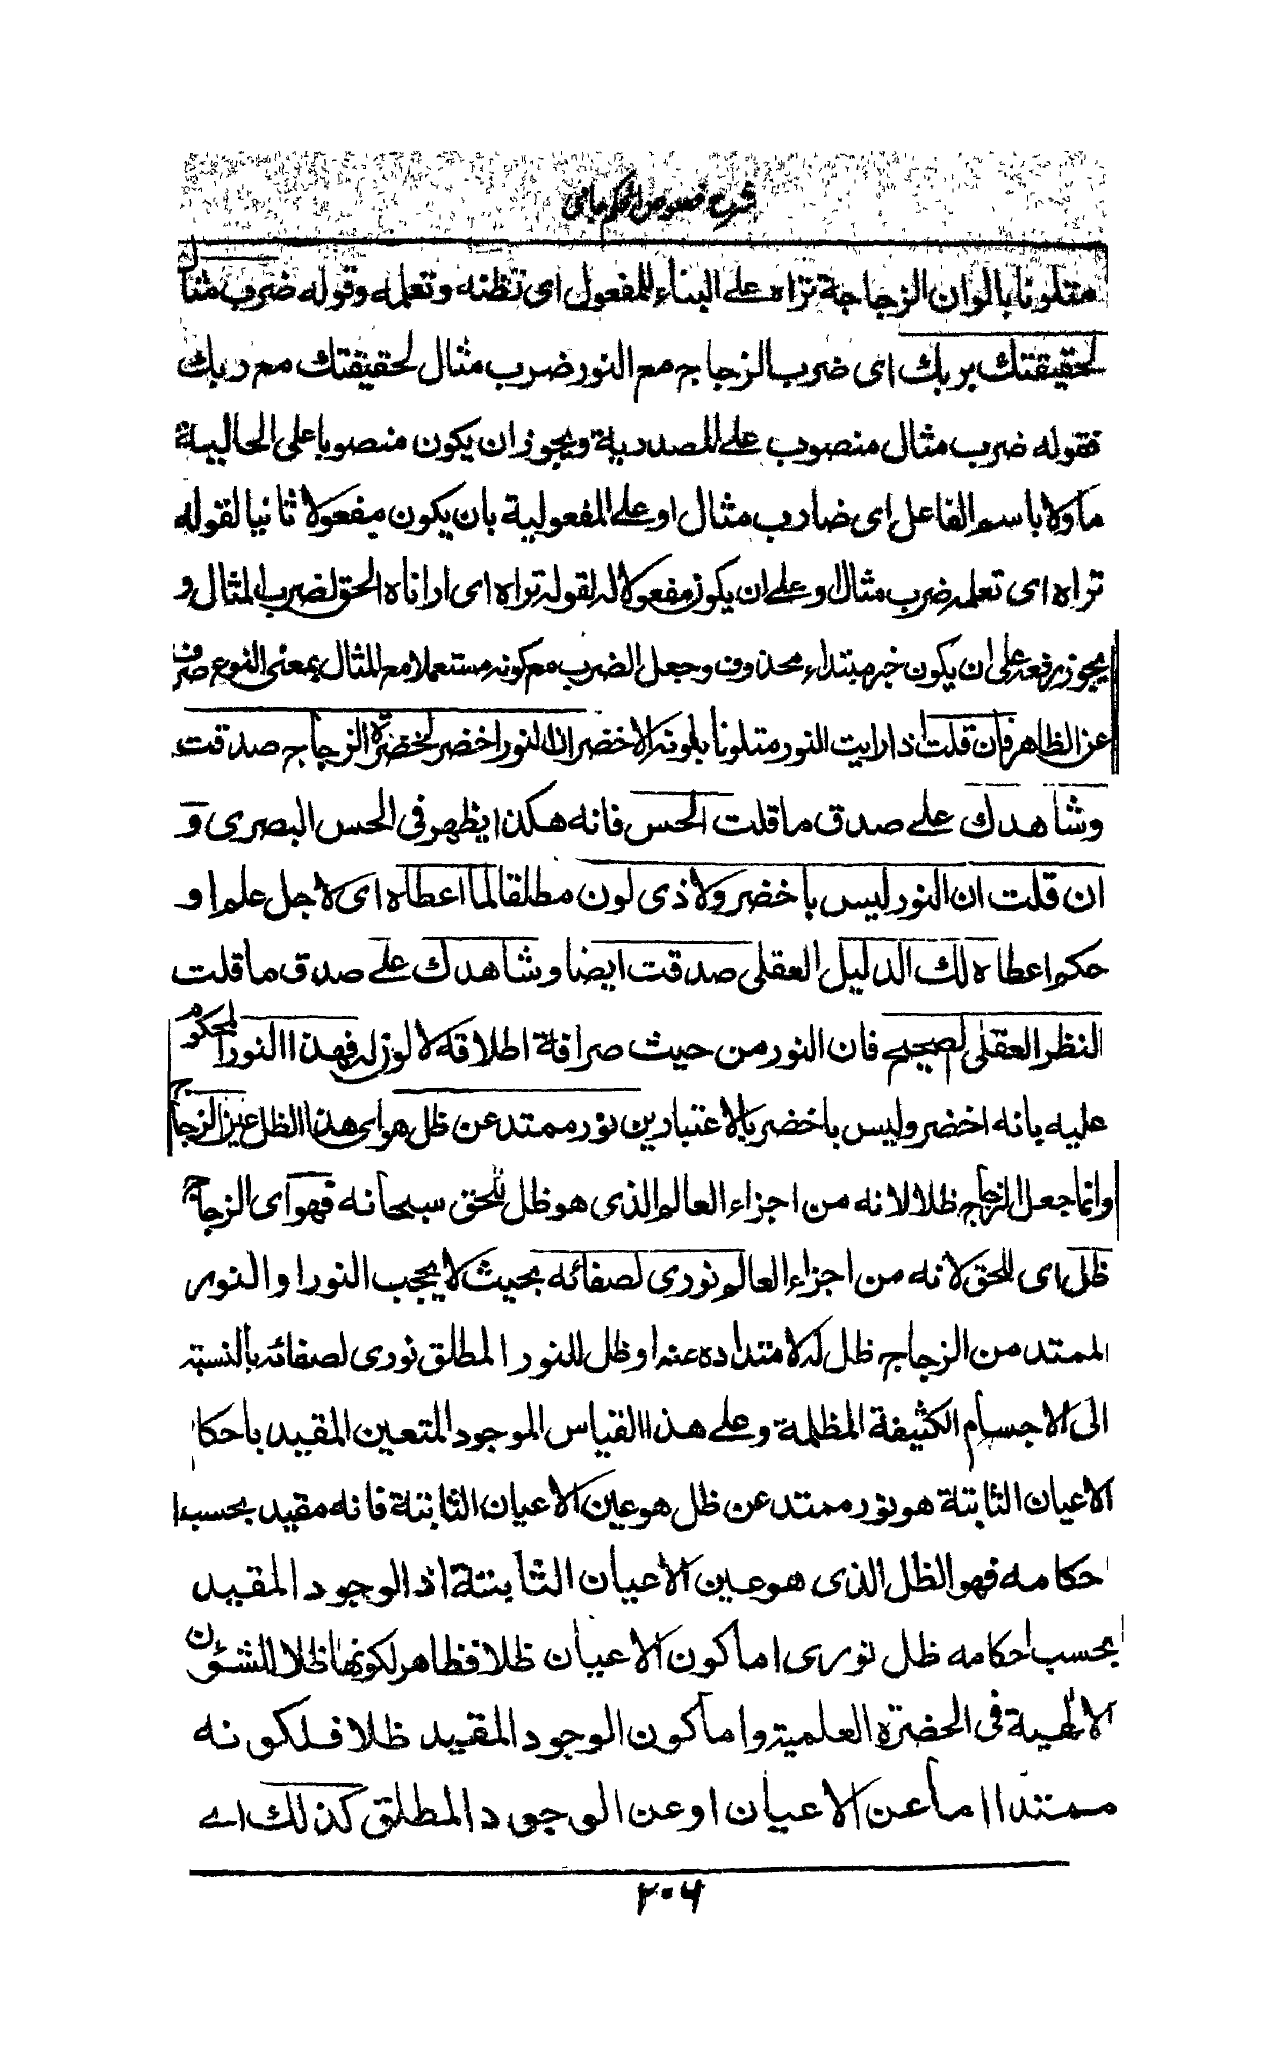 شرح فصوص الحكم جامى
متلونا بالوان الزجاجة تراه على البناء للمفعول اى تظنه وتعلمه وقوله ضرب مثال
لحقيقتك بربك اى ضرب الزجاج مع النور ضرب مثال لحقيقتك مع ربك
فقوله ضرب مثال منصوب على المصدرية ويجوز ان يكون منصوبا على الحالية
مأولا باسم الفاعل اى ضارب مثال او على المفعولية بان يكون مفعولا ثانيا لقوله
تراه اى تعلمه ضرب مثال او على ان يكون مفعولا له لقوله تراه اى اراناه الحق لضرب المثال و
يجوز رفعه على ان يكون خبر مبتداء محذوف وجعل الضرب مع كونه مستعملا مع المثال بمعنى النوع صرف
عن الظاهر فان قلت اذا رايت النور متلونا بلونه الاخضر ان النور اخضر لخضرة الزجاج صدقت
وشاهدك على صدق ما قلت الحس فانه هكذا يظهر فى الحس البصرى و
ان قلت ان النور ليس باخضر ولا ذى لون مطلقا لما اعطاه اى لاجل علم او
حكم اعطاه لك الدليل العقلى صدقت ايضا وشاهدك على صدق ما قلت
النظر العقلى الصحيح فان النور من حيث صرافة اطلاقه لا لون له فهذا النور المحكوم
عليه بانه اخضر وليس باخضر بالاعتبارين نور ممتد عن ظل هو اى هذا الظل عين الزجاج
وانما جعل الزجاج ظلا لانه من اجزاء العالم الذى هو ظل للحق سبحانه فهو اى الزجاج
ظل اى للحق لانه من اجزاء العالم نورى لصفائه بحيث لا يحجب النور او النور
الممتد من الزجاج ظل له لامتداده عنه او ظل للنور المطلق نورى لصفائه بالنسبة
الى الاجسام الكثيفة المظلمة وعلى هذا القياس الموجود المتعين المقيد باحكام
الاعيان الثابتة هو نور ممتد عن ظل هو عين الاعيان الثابتة فانه مقيد بحسب
احكامه فهو الظل الذى هو عين الاعيان الثابتة اذ الوجود المقيد
بحسب احكامه ظل نورى اما كون الاعيان ظلا فظاهر لكونها ظلا للشئون
الالهية فى الحضرة العلمية واما كون الوجود المقيد ظلا فلكونه
ممتدا اما عن الاعيان او عن الوجود المطلق كذلك اے
٢٠٦